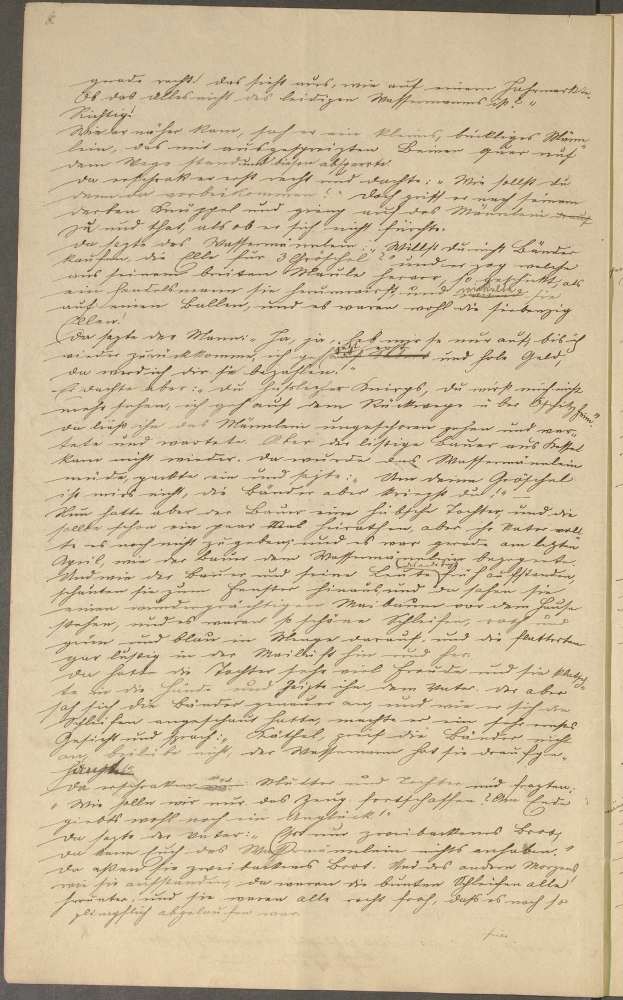 gerade recht! das sieht aus, wie auf einem Jahrmarkte.
Ob das alles nicht des leidigen Wassermanns ist?"
Richtig!
Wie er näher kam, sah er ein kleines, buckliges Männ
lein, das mit ausgespreizten Beinen quer auf
dem Wege stand und diesen absperrte.
Da erschrak er erst recht und dachte: "Wie sollst du
denn da vorbeikommen!" Doch griff er nach seinem
derben Knüppel und gieng auf das Männlein
zu und that, als ob er sich nicht fürchte.
Da sagte das Wassermännlein: "Willst du nicht Bänder
kaufen, die Elle für 3 Gröschel?" und er zog welche
aus seinem breiten Maule hervor, so geschickt, als
ein Handelsmann sie herumwirft, und sie
auf einen Ballen, und es waren wohl die siebenzig
Ellen!
Da sagte der Mann: "Ja, ja, heb mir se nur auf, bis ich
wieder zurückkomme, ich geh erst und hole Geld,
da werd ich dir sie bezahlen."
Er dachte aber: "Du hässlicher Knirps, du wirst mich nicht
mehr sehen, ich geh auf dem Rückwege über heim."
Da ließ ihn das Männlein ungeschoren gehen und war-
tete und wartete. Aber der listige Bauer aus
kam nicht wieder. Da wurde das Wassermännlein
müde, packte ein und sagte: "Um deine Gröschel
ist mirs nicht, die Bänder aber kriegst du!"
Nun hatte aber der Bauer eine hübsche Tochter, und die
sollte schon ein paar Mal heirathen, aber ihr Vater woll
te es noch nicht zugeben; und es war gerade am letzten
April, wie der Bauer dem Wassermännlein begegnete.
Und wie der Bauer und seine Leute früh aufstanden,
schauten sie zum Fenster hinaus, und da sahen sie
einen wunderprächtigen Maibaum vor dem Hause
stehen, und es waren so schöne Schleifen, roth und
grün und blau in Menge darauf, und die flatterten
gar lustig in der Mailuft hin und her.
Da hatte die Tochter sehr viel Freude und sie klatsch-
te in die Hände und zeigte ihn dem Vater. Der aber
sah sich die Bänder genauer an, und wie er sich die
Schleifen angeschaut hatte, machte er ein sehr ernstes
Gesicht und sprach: "Käthel, greif die Bänder nicht
an, beileibe nicht, der Wassermann hat sie draufge-
hängt!"
Da erschraken Mutter und Tochter und fragten:
"Wie sollen wir nur das Zeug fortschaffen? Am Ende
giebts wohl noch ein Unglück!"
Da sagte der Vater: "Esst nur zweibackenes Brot,
da kann euch das Wassermännlein nichts anhaben."
Da aßen sie zweibackenes Brot. Und des andern Morgens,
wie sie aufstanden, da waren die bunten Schleifen alle
herunter, und sie waren alle recht froh, daß es noch so
glimpflich abgelaufen war.